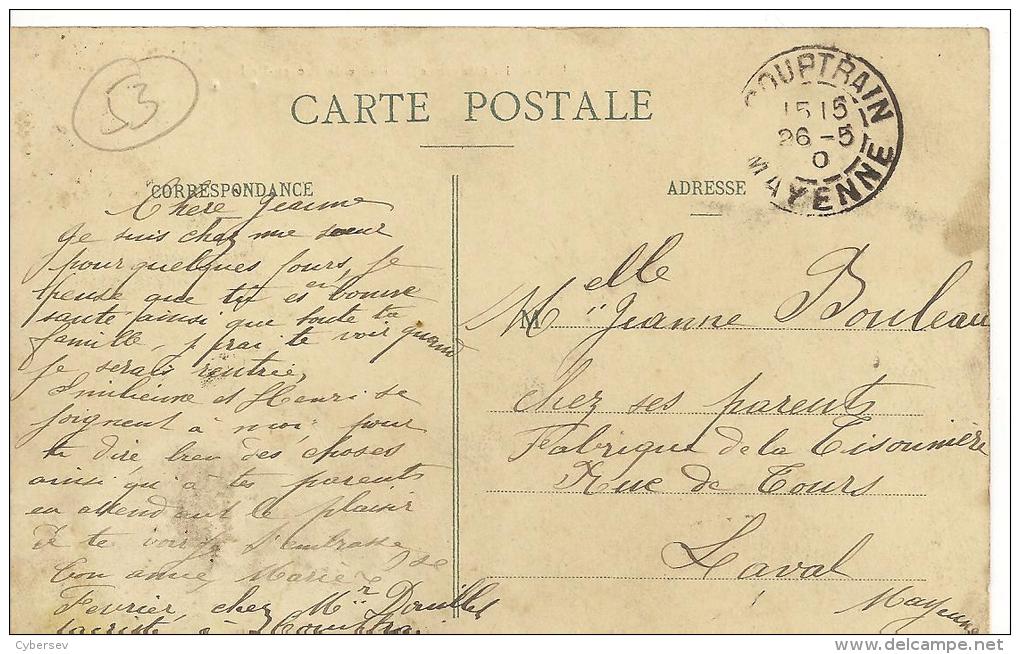 53
CARTE POSTALE
COUPTRAIN
1515
26-5
0
MAYENNE
CORRESPONDANCE
ADRESSE
Chere Jeanne
Je suis chez me sœur
pour quelques jours, je
pense que tu es en bonne
sante ainsi que toute ta
famille, j irai te voir quand
je serais rentrée,
Emilienne et Henri se
joignent à moi pour
te dire bien des choses
ainsi qu'à tes parents
en attendant le plaisir
de te voir je t'embrasse
Ton amie Marie
Fevrier, chez Mr
M
Melle Jeanne Bouleau
chez ses parents
Fabrique de la Tisonnière
Rue de Tours
Laval
Mayenne
Cybersev
www.delcampe.net